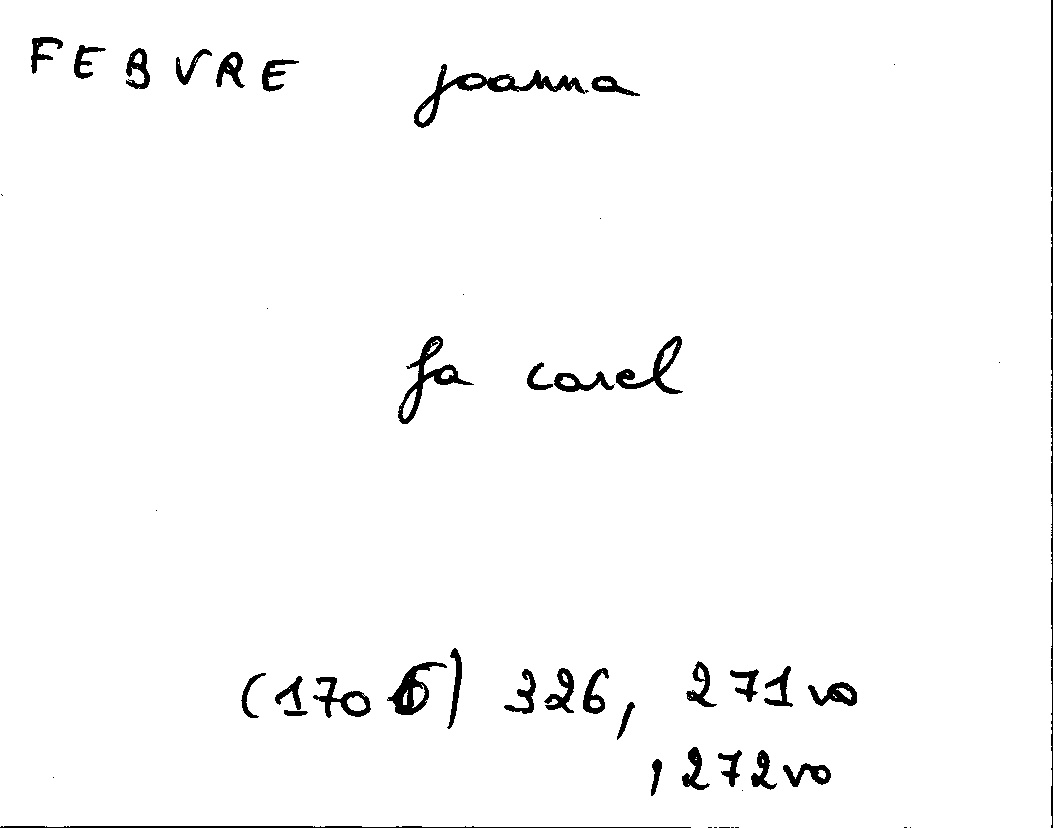 FEBVRE Joanna
fa carel
(1706) 326, 271vo
, 272vo